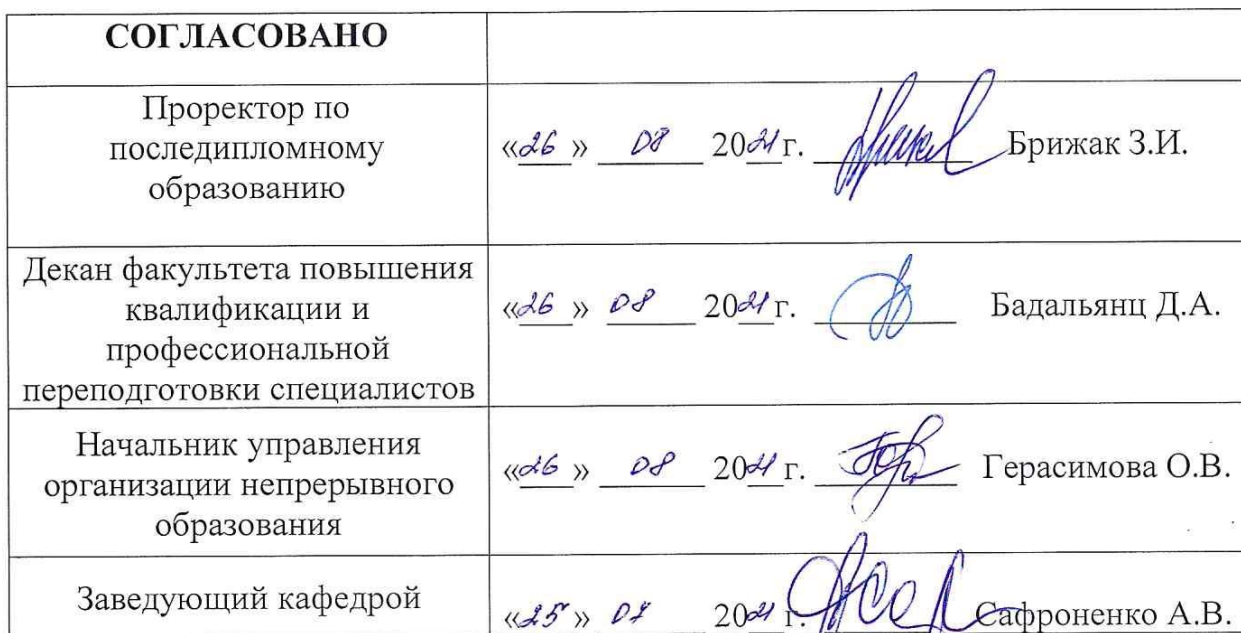 СОГЛАСОВАНО
Проректор по
последипломному
образованию
«26» 08 2021г. Брижак З.И.
Декан факультета повышения
квалификации и
профессиональной
переподготовки специалистов
«26» 08 2021г. Бадальянц Д.А.
Начальник управления
организации непрерывного
образования
«26» 08 2021г. Герасимова О.В.
Заведующий кафедрой
«25» 07 2021 г. Сафроненко А.В.